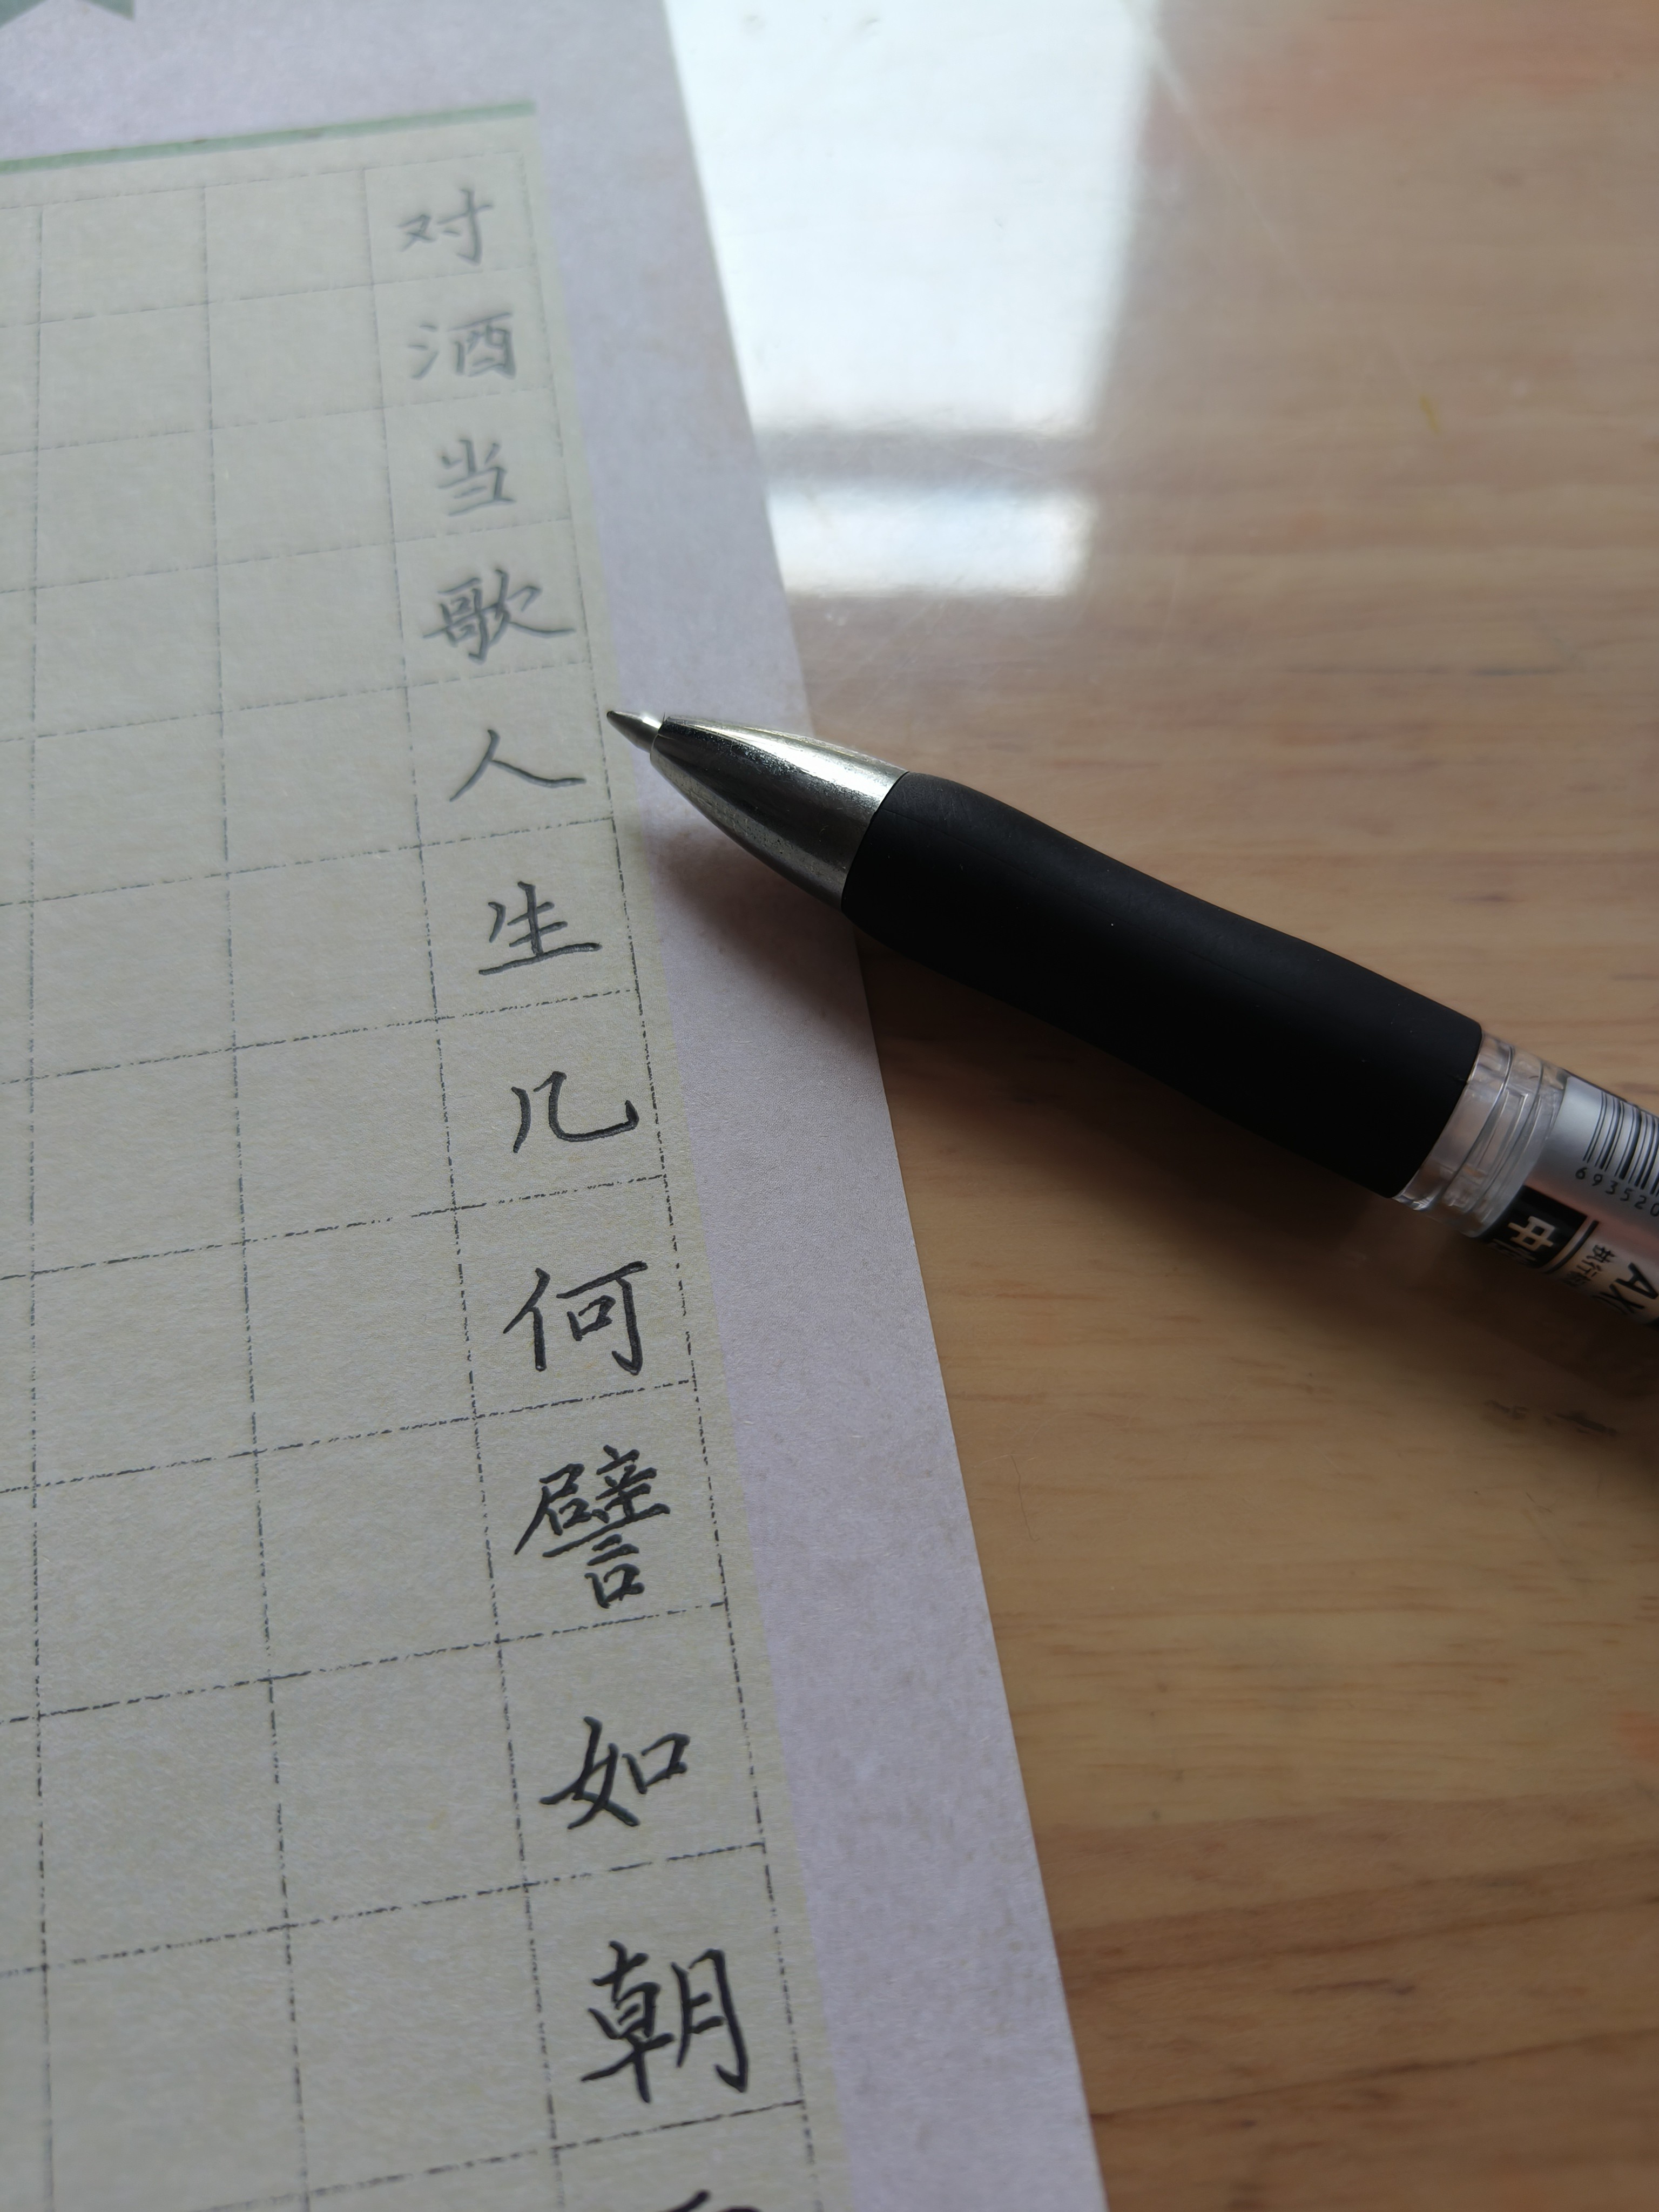 对酒当歌人生几何譬如朝
693520
中
执行
AX